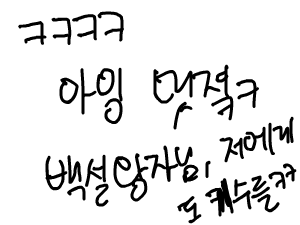 ㅋㅋㅋㅋ
아잉 머쩍ㅋ
백설왕자님, 저에게
또 케수를ㅋㅋ